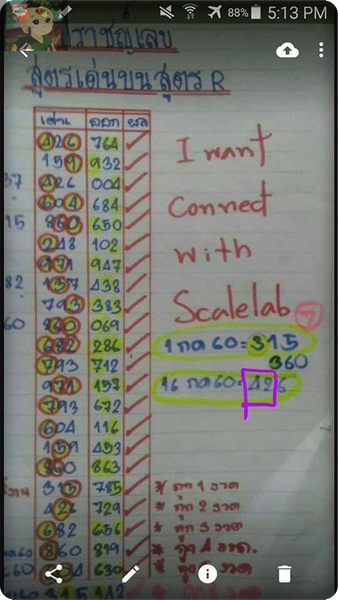 88% 5:13 PM
ราชัญเลข
สูตรเด่นบนสูตร R
เด่น ออก ผล
426 764
159 932
37 426 004
604 684
15 860 650
248 102
971 947
82 157 438
793 383
60 860 069
682 286
793 712
971 157
793 672
604 116
159 453
860 863
315 785
426 729
682 656
860 819
604 630
315 142
I want
Connect
with
Scalelab
1 กค 60 = 315
360
16 กค 60 = 426
* ถูก 1 งวด
* ถูก 2 งวด
* ถูก 3 งวด
* ถูก 4 งวด.